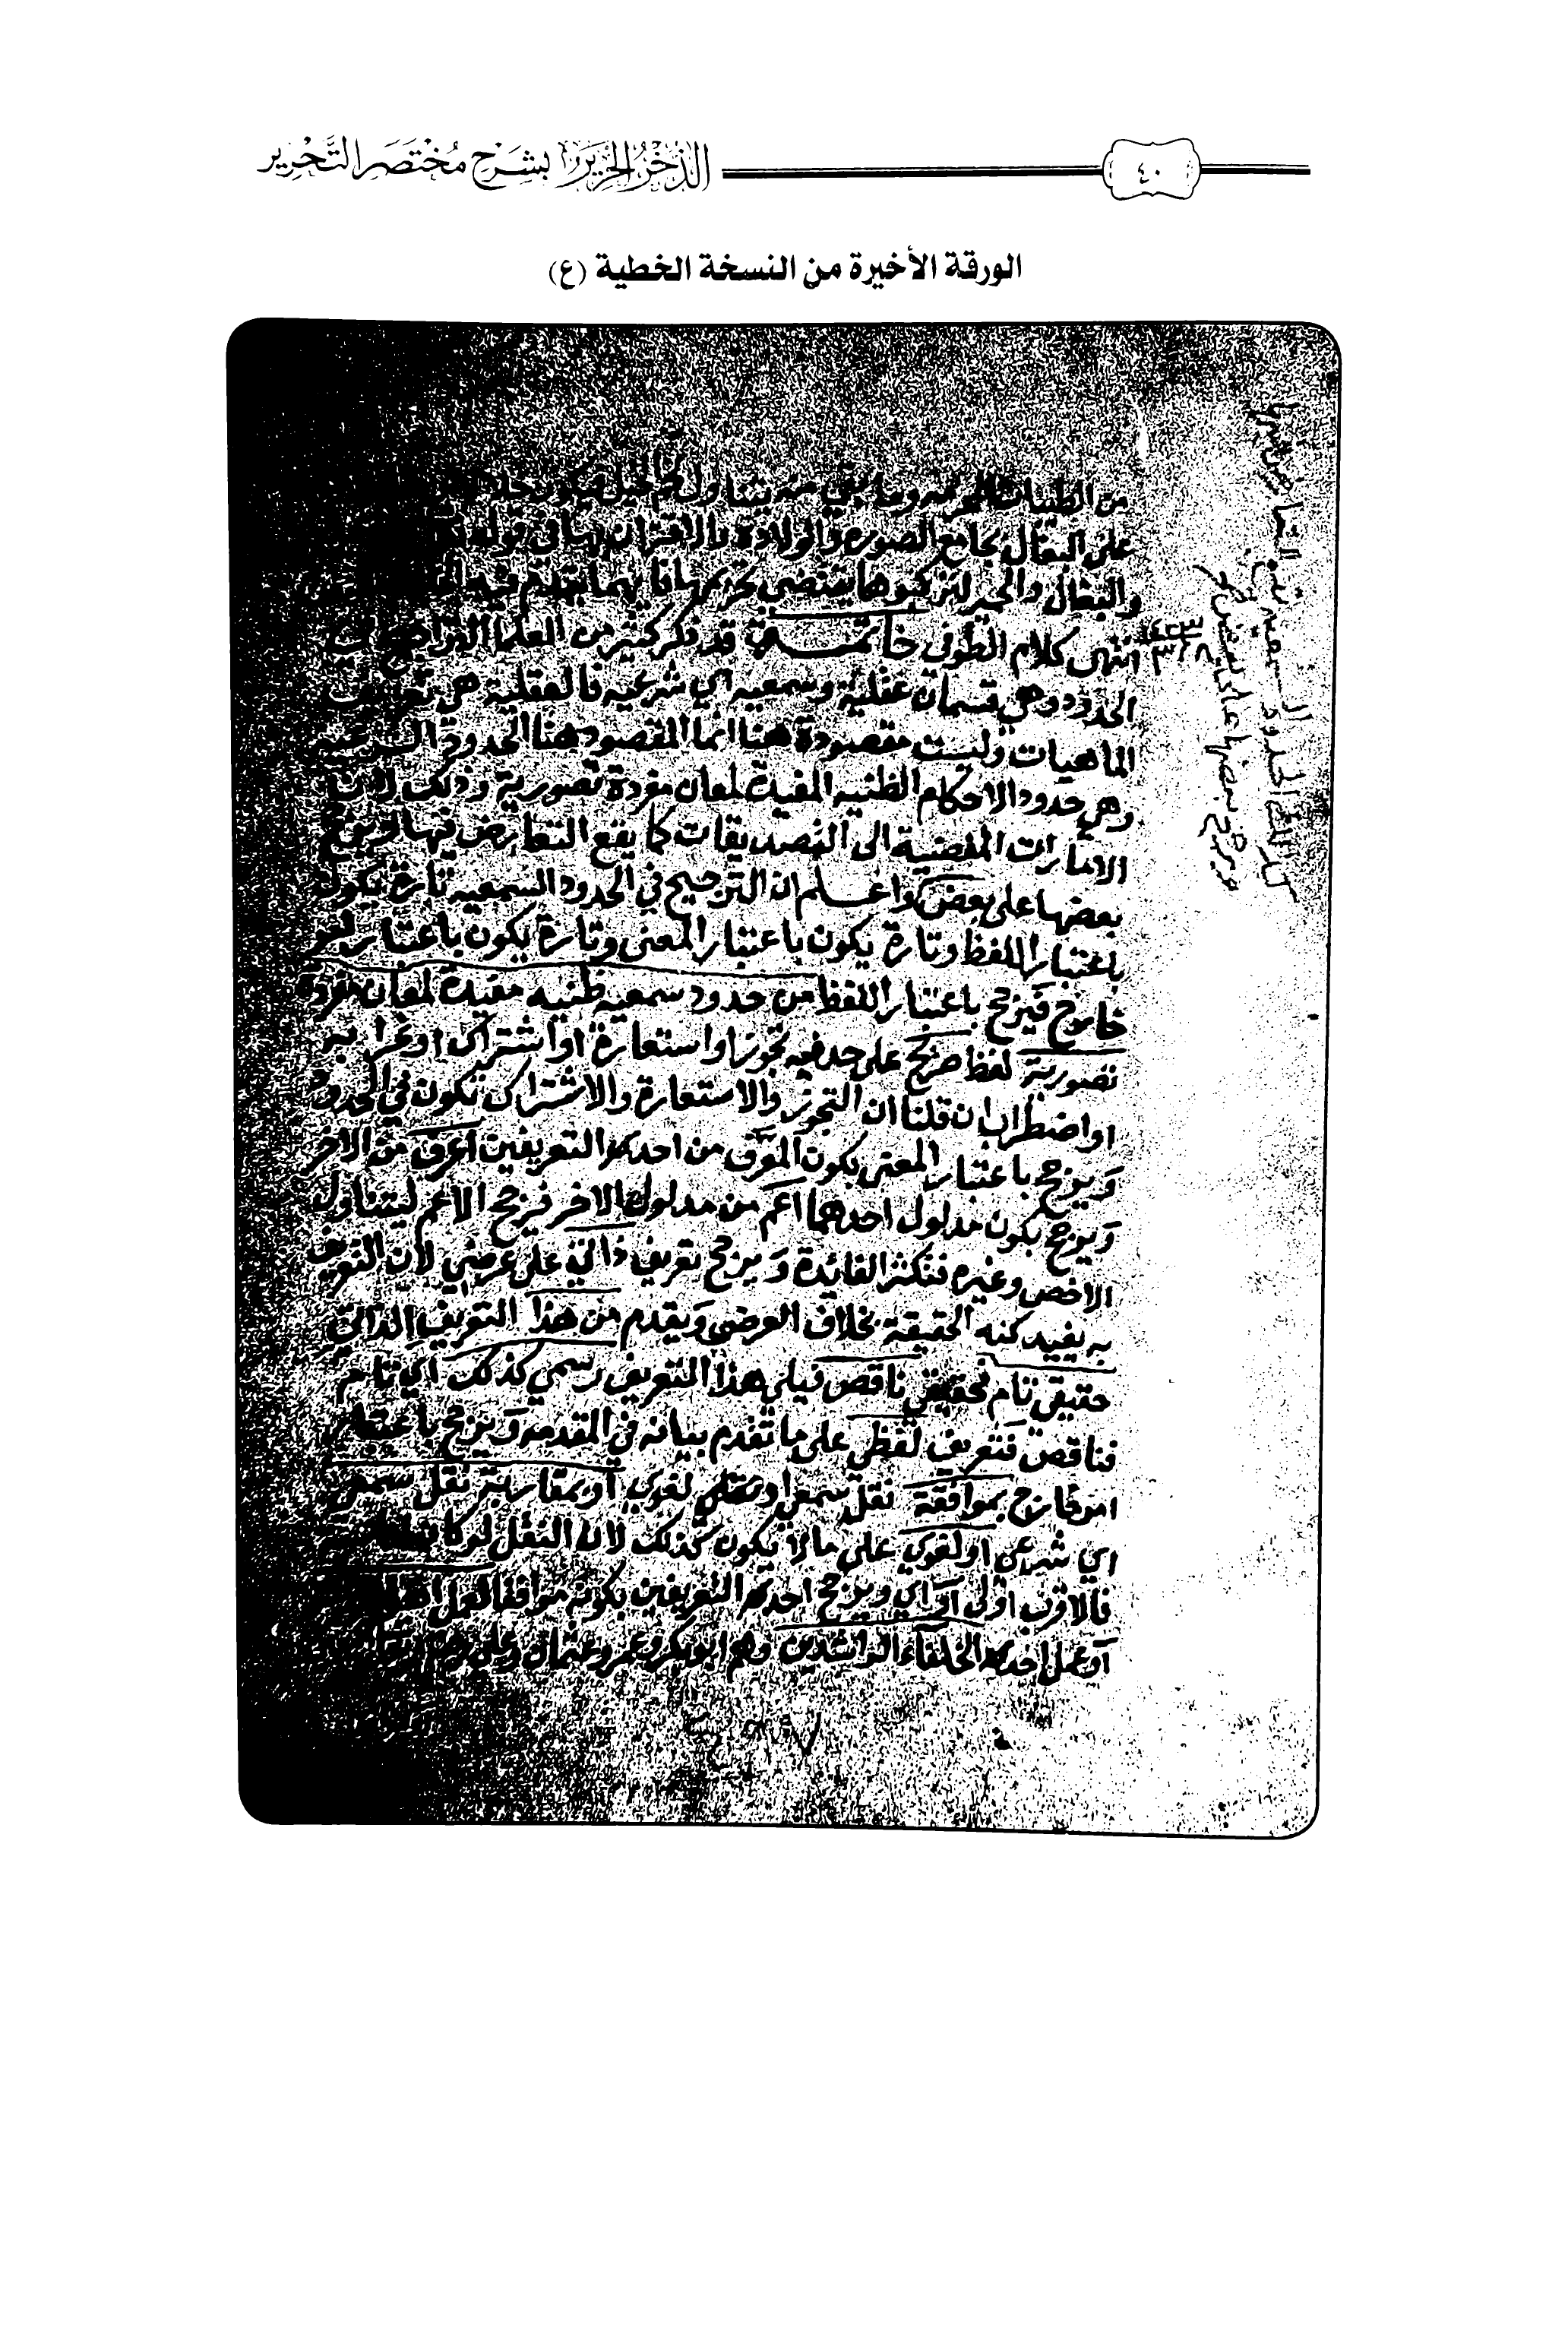 الذخر الحرير بشرح مختصر التحرير
٤٠
الورقة الأخيرة من النسخة الخطية (ع)
من الطيبات وما بقي منه يتناول لحم الخيل
على البغال بجامع الصورة والولادة والاقتران بهما في قوله
والبغال والحمير لتركبوها يقتضي تحريمها فأيهما يقدم فيه
انتهى كلام الطوفي خاتمة قد ذكر كثير من العلما التراجيح في
الحدود وهي قسمان عقلية وسمعيه اي شرعيه فالعقلية هي تعريف
الماهيات وليست مقصودة هنا انما المقصود هنا الحدود السمعيه
وهي حدود الاحكام الظنيه المفيدة لمعان مفردة تصورية وذلك لان
الامارات المفضية الى التصديقات كما يقع التعارض فيها ويرجح
بعضها على بعض واعلم ان الترجيح في الحدود السمعيه تارة يكون
باعتبار اللفظ وتارة يكون باعتبار المعنى وتارة يكون باعتبار امر
خارج فيرجح باعتبار اللفظ من حدود سمعيه ظنيه مفيدة لمعان مفردة
تصورية لفظ صريح على حد فيه تجوز او استعارة او اشتراك او غرابه
او اضطراب ان قلنا ان التجوز والاستعارة والاشتراك تكون في الحدود
ويرجح باعتبار المعنى بكون المعرف من احد التعريفين اعرف من الاخر
ويرجح بكون مدلول احدهما اعم من مدلول الاخر فيرجح الاعم ليتناول
الاخص وغيره فتكثر الفائدة ويرجح تعريف ذاتي على عرضي لان التعريف
به يفيد كنه الحقيقة بخلاف العرضي ويقدم من هذا التعريف الذاتي
حقيقي تام فحقيقي ناقص فيلي هذا التعريف رسمي كذلك اي تام
فناقص فتعريف لفظي على ما تقدم بيانه في المقدمه ويرجح باعتبار
امر خارج بموافقة نقل سمعي او نقلي لغوي او بمقاربة نقل سمعي
اي شرعي او لغوي على ما لا يكون كذلك لان النقل لو كان
فالاقرب اولى او اي ويرجح احد التعريفين بكونه موافقا لعمل اهل
او عمل احد الخلفاء الراشدين وهم ابو بكر وعمر وعثمان وعلي